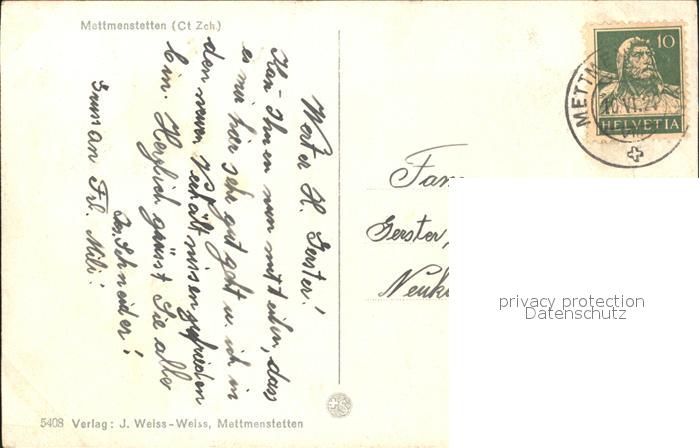 Mettmenstetten (Ct Zch)
Werter H. Gerster!
Kan Ihnen nun mitteilen, das
es mir hier sehr gut geht u. ich in
den neuen Verhältnissen zufrieden
bin. Herzlich grüsst Sie alle
Schneider!
Gruss an Frl. Mili!
10
HELVETIA
METTME
10.VI.24
Fam
Gerster,
Neuk
privacy protection
Datenschutz
5408 Verlag: J. Weiss-Weiss, Mettmenstetten